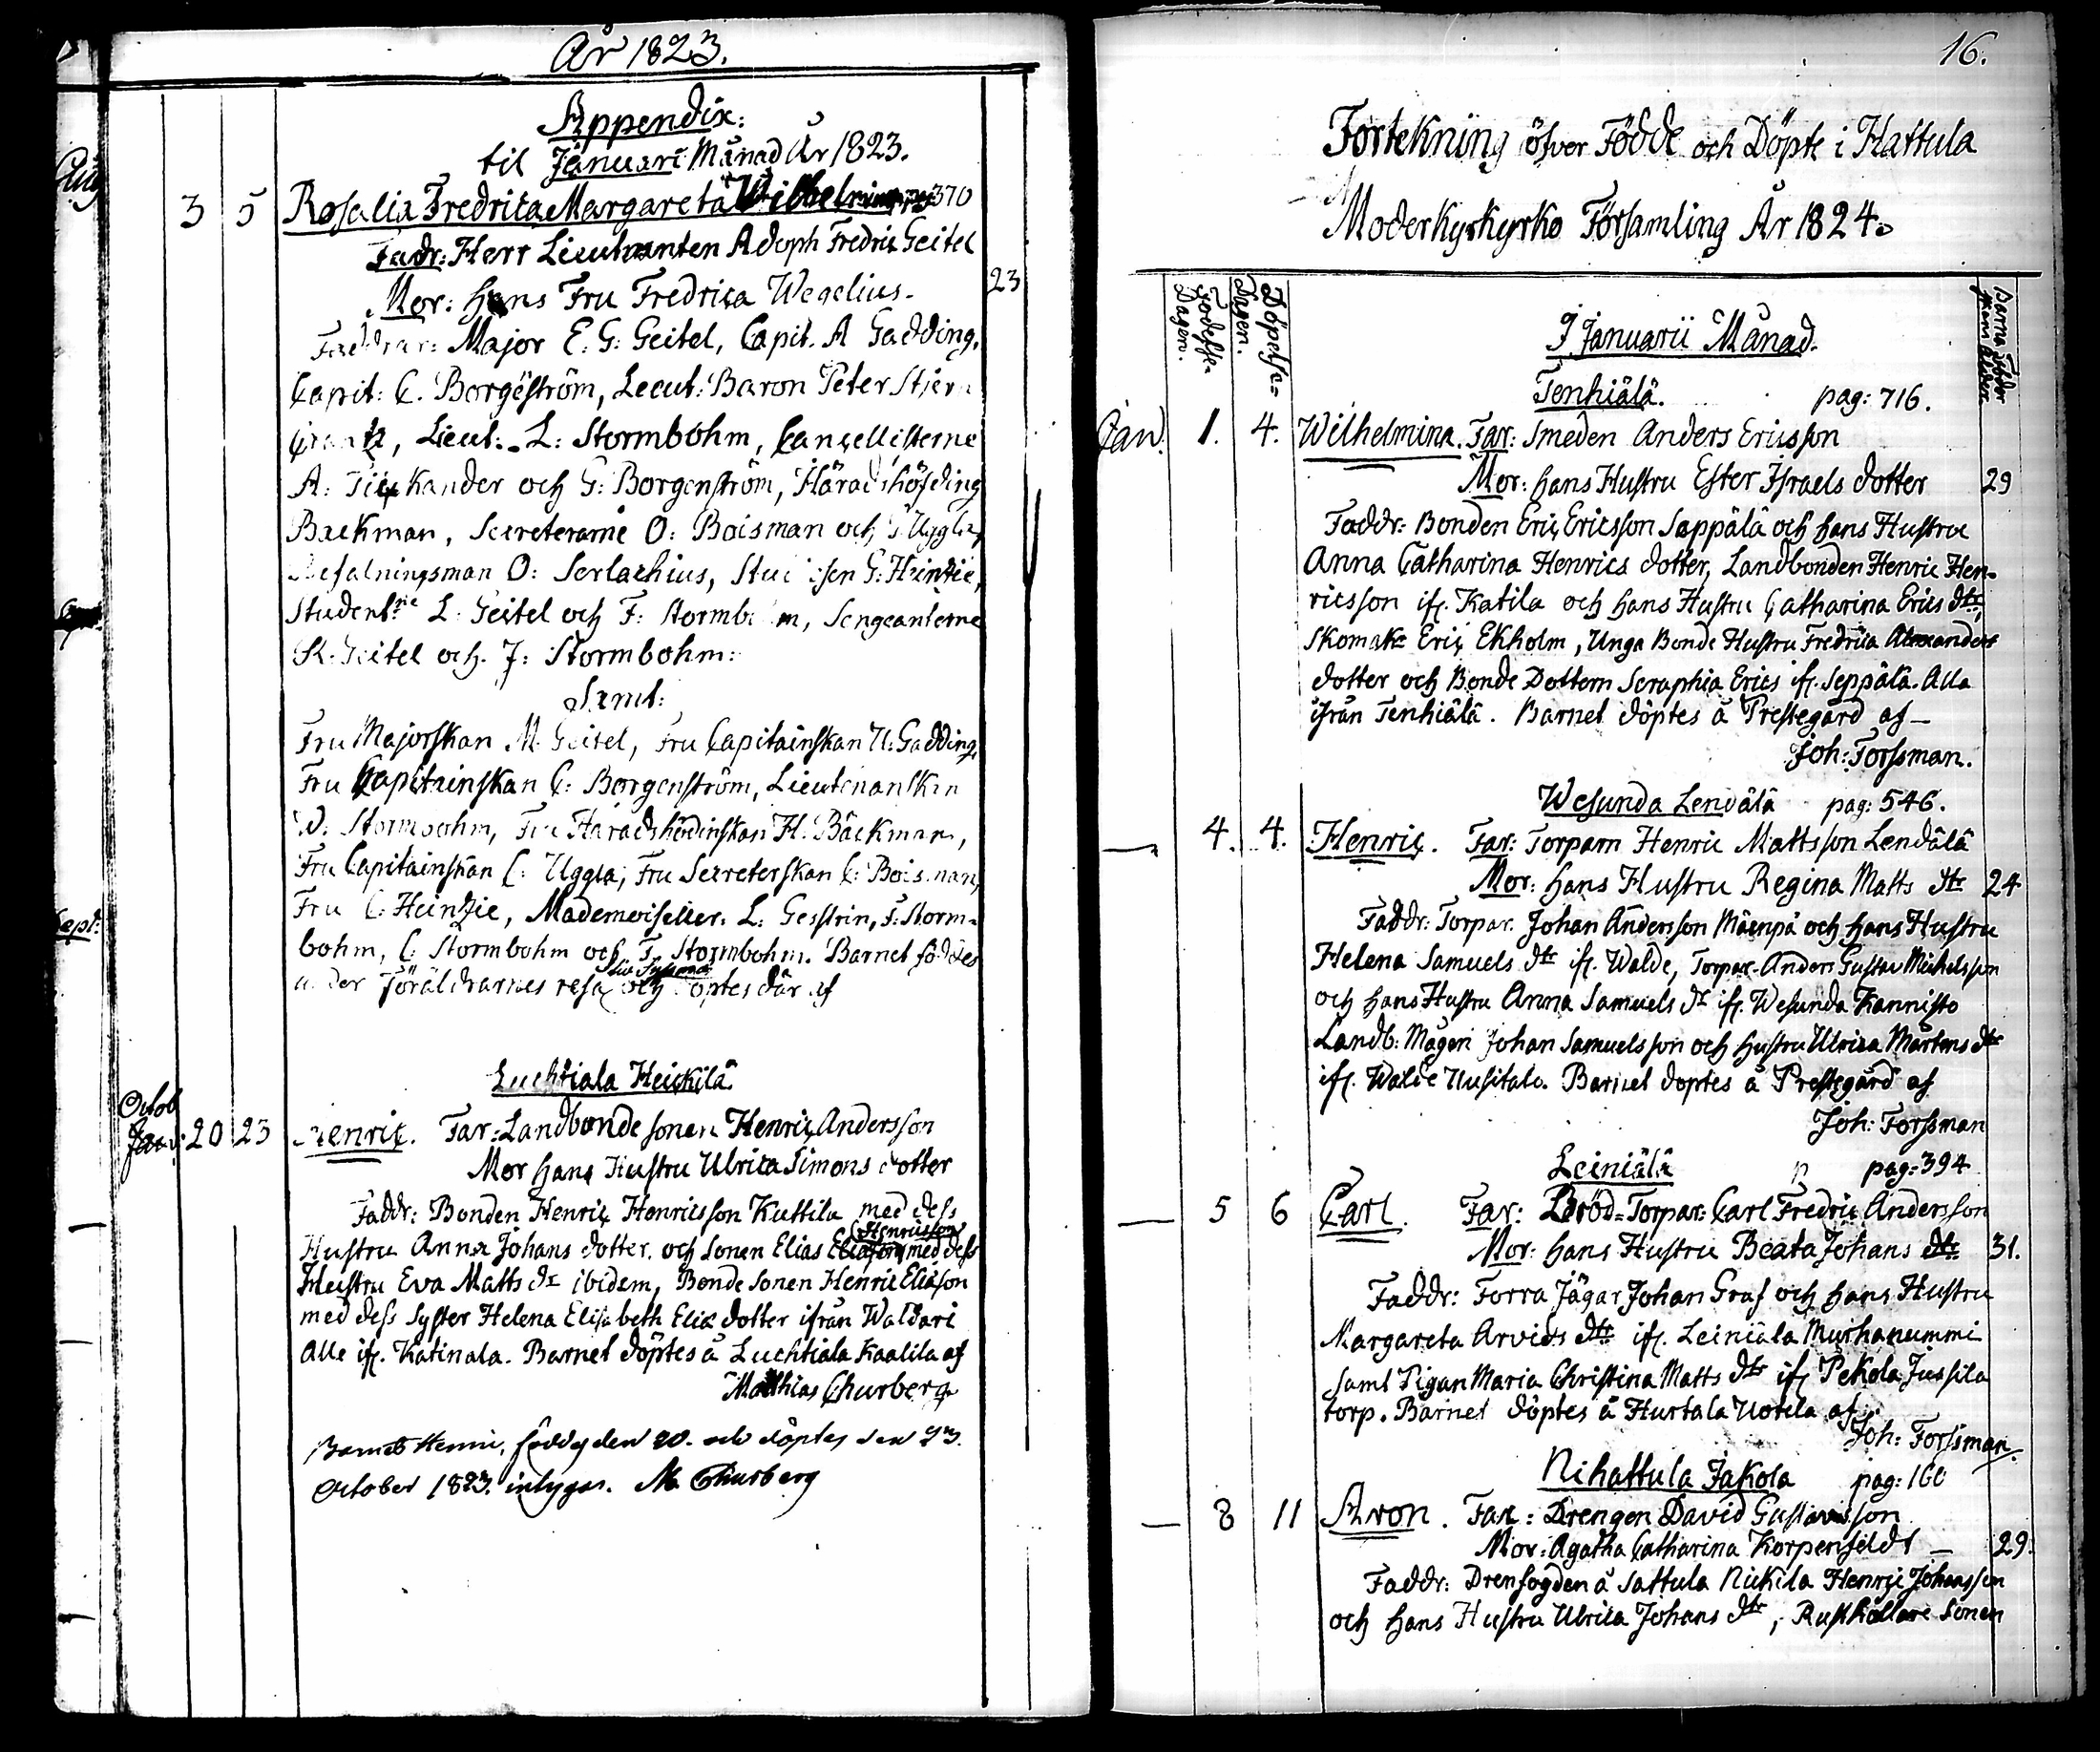 År 1823.
Appendix:
til Januari Månad År 1823.
3 5 Rosalia Fredrica Margareta Wilhelmina 370
Fadr: Herr Lieutnanten Adoph Fredric Geitel
23
Mor: hans Fru Fredrica Wegelius.
Faddrar: Major E. G: Geitel, Capit. A Gadding,
Capit: C. Borgëström, Lieut: Baron Peter Stjern
Crantz, Lieut:- L: Stormbohm, Cancellisterne
A: och G: Borgenström, Häradshöfding
Backman, Secreterarne O: Boisman och Uggla,
Befalningsman O: Serlachius, G: Heintzie,
Student:ne L: Geitel och F: Stormbohm, Sergeanterne
Geitel och J: Stormbohm:
Samt:
Fru Majorskan M. Geitel, Fru Capitainskan U: Gadding,
Fru Capitainskan C: Borgenström, Lieutenanskan
W: Stormbohm, Fru Häradshödinskan H. Bäckman,
Fru Capitainskan C: Uggla, Fru Secreterskan C: Boisman,
Fru C: Heintzie, Mademoiseller. L: Gestrin, F: Storm=
bohm, C: Stormbohm och F. Stormbohm. Barnet föddes
under Föräldrarnes resa och döptes där af
Luchtiala Heickilä
Octob
Jan: 20 23 Henric. Far: Landbondesonen Henric Andersson
Mor hans Hustru Ulrica Simons dotter
Faddr: Bonden Henric Henricsson Kuttila med dess
Henricsson
Hustru Anna Johans dotter. och Sonen Elias Eliason med dess
Heustru Eva Matts dr ibidem, Bonde Sonen Henric Eliason
med dess Syster Helena Elisabeth Elie dotter ifrån Waldari
Alle ifr. Katinala. Barnet döptes å Luchtiala Kaalila af
Matthias Churberg
Barnet Henric, föddes den 20. och döptes den 23.
October 1823. intygar. M. Churberg
16.
Förtekning öfver Födde och Döpte i Hattula
Moderkyrkyrko Församling År 1824.
Födelse-Dagen.
Döpelse=Dagen.
I Januarii Månad.
Tenhiälä. pag: 716.
Jan. 1. 4. Wilhelmina. Far: Smeden Anders Ericsson
Mor: hans Hustru Ester Israels dotter 29
Faddr: Bonden Eric Ericsson Sappälä och hans Hustru
Anna Catharina Henrics dotter, Landbonden Henric Hen-
ricsson ifr. Katila och hans Hustru Catharina Erics dtr,
Skomakr Eric Ekholm, Unga Bonde Hustru Fredrica Alexanders
dotter och Bonde Dottern Seraphia Erics ifr. Seppälä. Alla
ifrån Tenhiälä. Barnet döptes å Prestegård af—
Joh: Forssman.
Wesunda Lendälä pag: 546.
— 4. 4. Henric. Far: Torparn Henric Mattsson Lendälä
Mor: hans Hustru Regina Matts dtr 24
Faddr: Torpar. Johan Andersson Mäenpä och hans Hustru
Helena Samuels dtr ifr. Walde, Torpar. Anders Gustav Michelsson
och hans Hustru Anna Samuels dr ifr. Wesunda Kannisto
Landb: Mågen Johan Samuelsson och hustru Ulrica Mårtens dtr
ifr. Walde Uusitalo. Barnet döptes å Prestegård af
Joh: Forssman
Leiniälä pag: 394
— 5 6 Carl. Far: Bröd=Torpar: Carl Fredric Andersson
Mor: hans Hustru Beata Johans dtr 31.
Faddr: Forra Jägar Johan Graf och hans Hustru
Margareta Arvids dtr ifr. Leiniala Murhanummi
samt Pigan Maria Christina Matts dtr ifr Pekola Jussila
torp. Barnet döptes å Hurtala Uotila af
Joh: Forssman.
Nihattula Jakola pag: 160
— 8 11 Aron. Far: Drengen David Gustavsson
Mor: Agatha Catharina Korpenfeldt — 29.
Faddr: Drenfogden å Sattula Nickila Henric Johansson
och hans Hustru Ulrica Johans dtr, Rusthållare Sonen